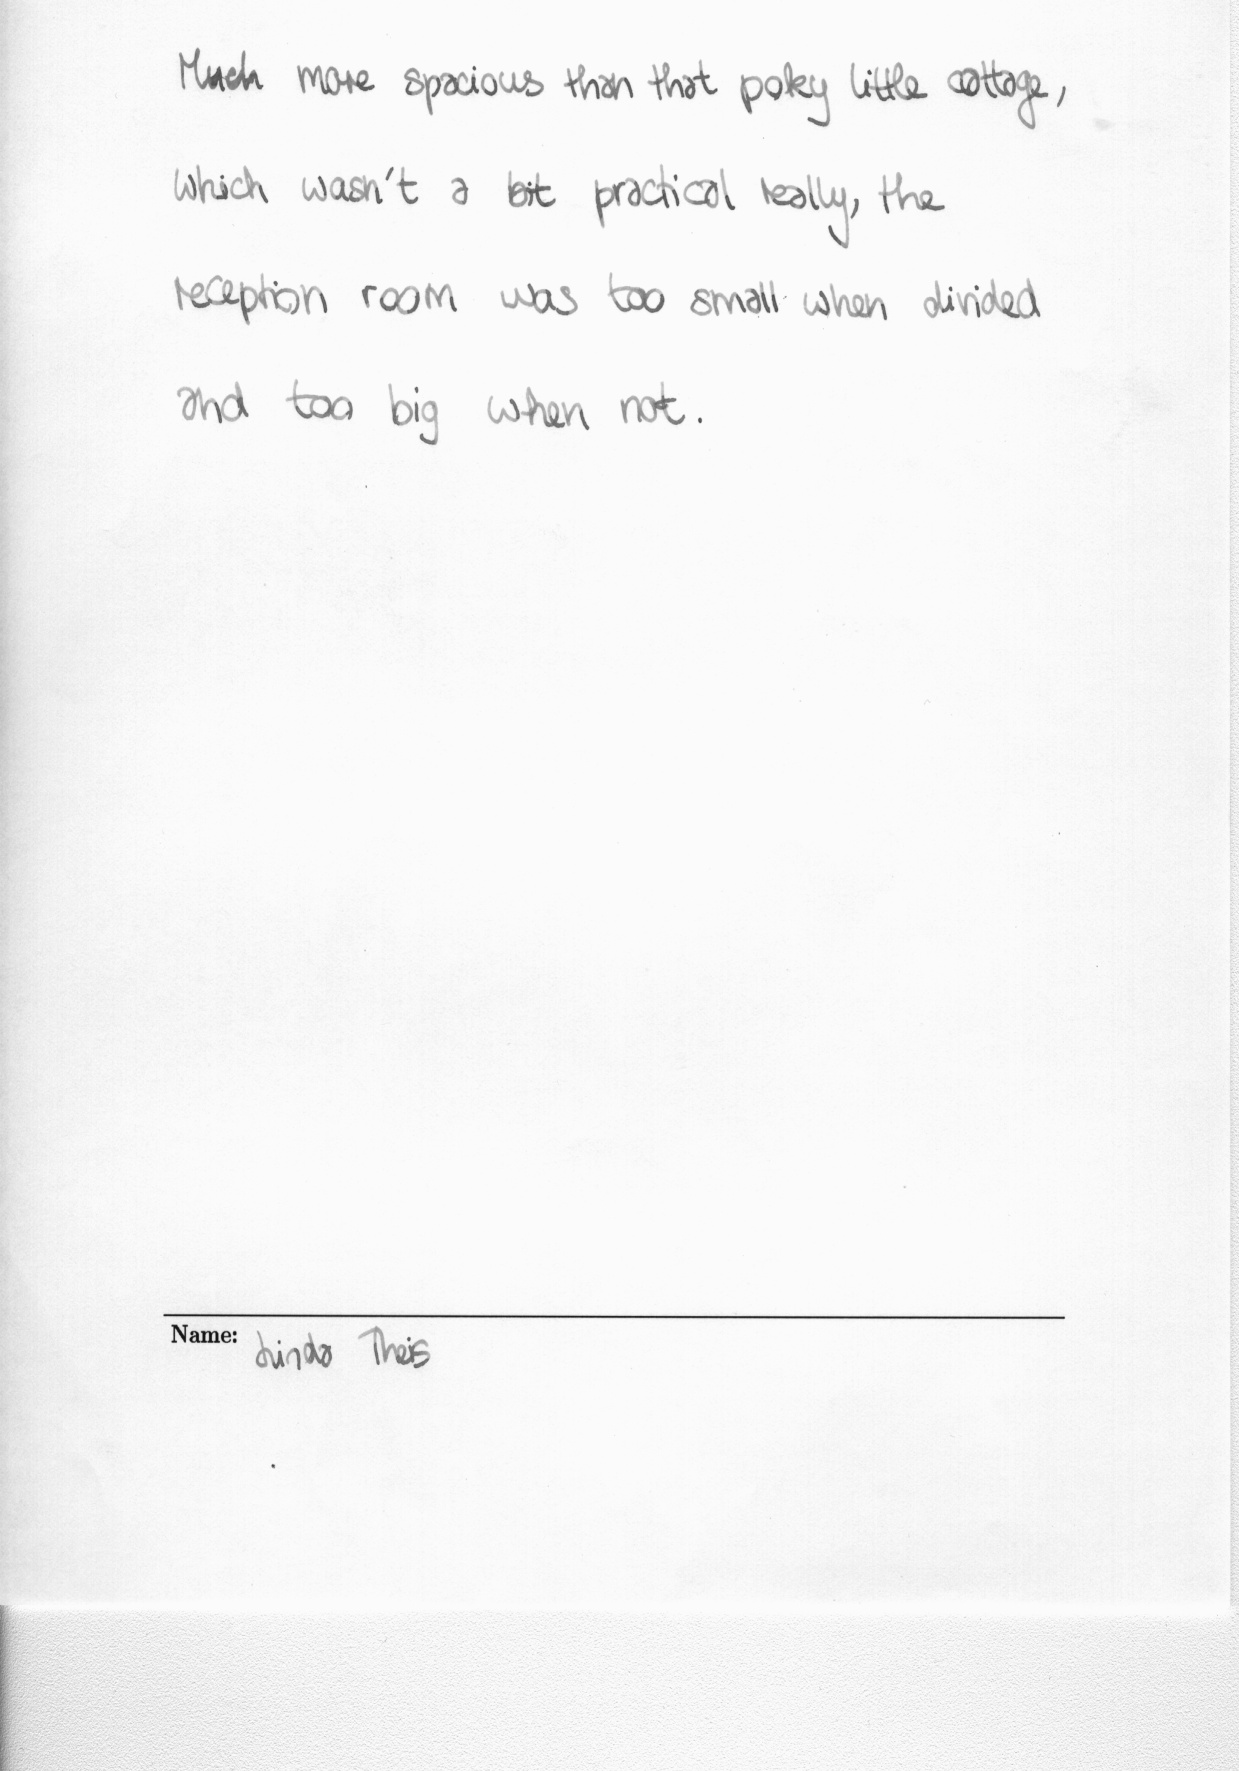 Much more spacious than that poky little cottage,
which wasn't a bit practical really, the
reception room was too small when divided
and too big when not.
Name: Linda Theis